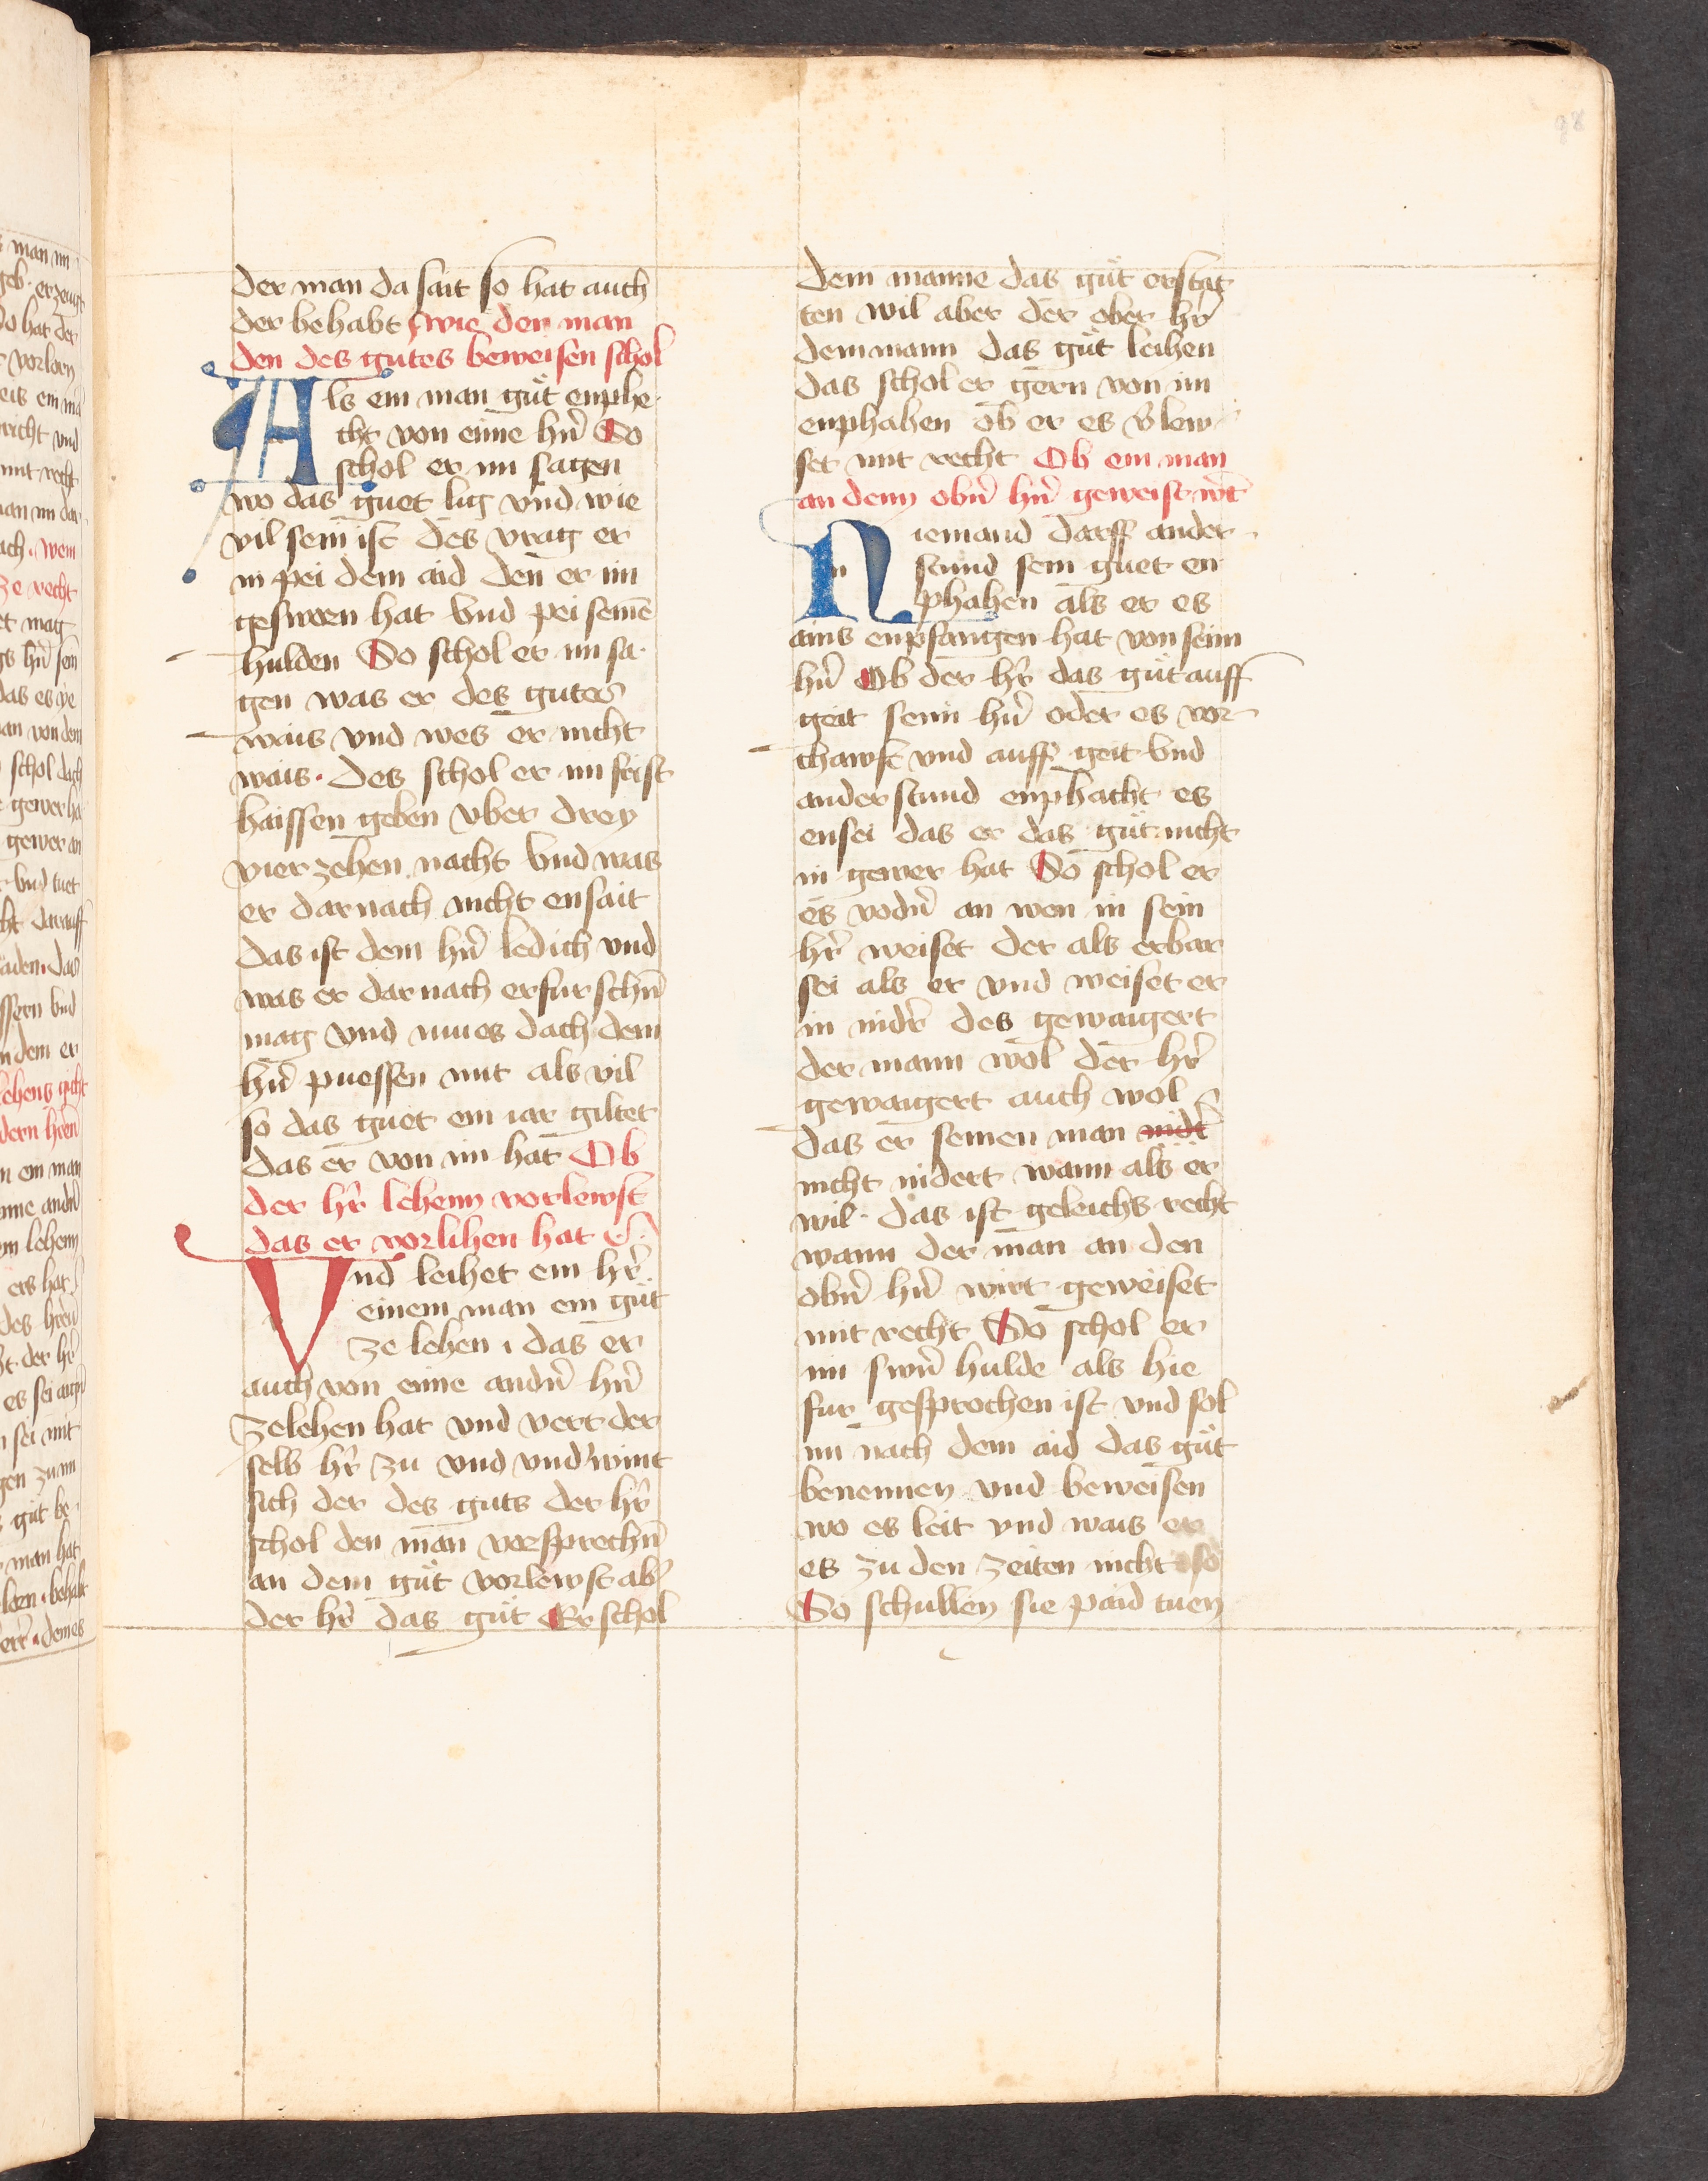 der man da sait so hat auch
der behabt wie der man
den des gutes beweisen schol
Als ein man guͤt enphe
cht von eine hr̄n So
schol er im sagen
wo das guet lig vnd wie
vil sein ist des vrag er
in pei dem aid den er im
gesworn hat Vnd pei seinē
hulden So schol er im sa
gen was er des gutes
wais vnd wes er nicht
wais · des schol er im frist
haissen geben vber drey
vierzehen nacht Vnd was
er darnach nicht ensait
das ist dem hr̄n ledich vnd
was er darnach erfurschn̄
mag vnd mues dach dem
hr̄n puessen mit als vil
so das guet ein iar giltet
das er von im hat Ob
der hr̄ lehenn vorlewst
das er vorlihen hat
Vnd leihet ein hr̄
einem man ein guͤt
ze lehen · das er
auch von eine andn̄ hr̄n
zelehen hat vnd vert der
selb hr̄ zu vnd vnd'wint
sich der des guts der hr̄
schol den man vorsprechn̄
an dem guͤt vorlewst ab'
der hr̄ das guͤt Er schol
dem manne das guͤt erstat
ten wil aber der ober hr̄
dem mann das guͤt leihen
das schol er gern von im
enphahen ob er es v'lew
set mit recht Ob ein man
an denn obn̄ hr̄n geweist wt̄
n
Niemand darff ander
stund sein guet en
phahen als er es
ains enpfangen hat von seim
hr̄n Ob der hr̄ das guͤt auff
geit seim hr̄n oder es vor
chawft vnd auff geit Vnd
ander stund enphacht es
ensei das er das guͤt nicht
in gewer hat So schol er
es vodn̄ an wen in sein
hr̄ weiset der als erbar
sei als er vnd weiset er
in nidr̄ des gewaigert
der mann wol der hr̄
gewaigert auch wol
das er seinen man nidt̄
nicht nidert wann als er
wil · das ist geleichs recht
wann der man an den
obn̄ hr̄n wirt geweiset
mit recht So schol er
im swn̄ hulde als hie
fur gesprochen ist vnd sol
im nach dem aid das guͤt
benennen vnd beweisen
wo es leit vnd wais er
es zu den zeiten nicht so
So schullen sie paid tuen